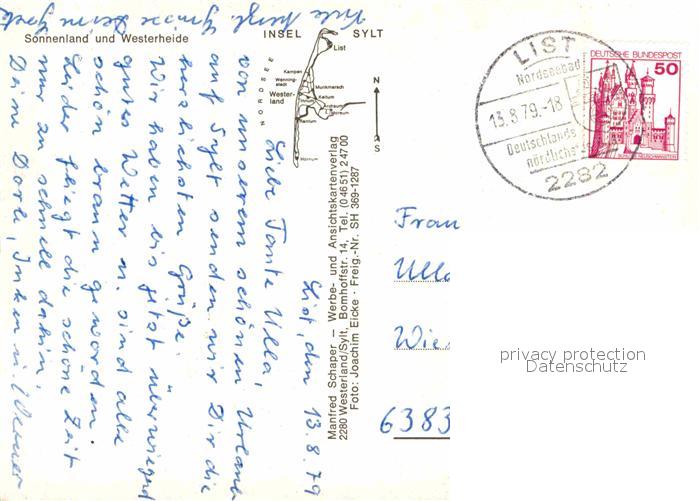 Sonnenland und Westerheide
INSEL SYLT
NORDSEE
List
Kampen
Wenning-
stedt
Munkmarsch
Wester-
land
Keitum
Morsum
Rantum
Hörnum
N
S
List, den 13.8.79
Liebe Tante Ulla,
von unserem schönen Urlaub
auf Sylt senden wir Dir die
herzlichsten Grüße.
Wir haben bis jetzt überwiegend
gutes Wetter u. sind alle
schön braun geworden.
Leider fliegt die schöne Zeit
nur zu schnell dahin,
Deine Dorle, Inken u. Werner
Viele herzl. Grüsse Deine
Manfred Schaper – Werbe- und Ansichtskartenverlag
2280 Westerland/Sylt, Bomhoffstr. 14, Tel. (04651) 24700
Foto: Joachim Eicke · Freig.-Nr. SH 369-1287
LIST
Nordseebad
13.8.79.-18
Deutschlands
nördlichst
2282
DEUTSCHE BUNDESPOST
50
SCHLOSS NEUSCHWANSTEIN
Frau
Ulla
Wie
6383
privacy protection
Datenschutz